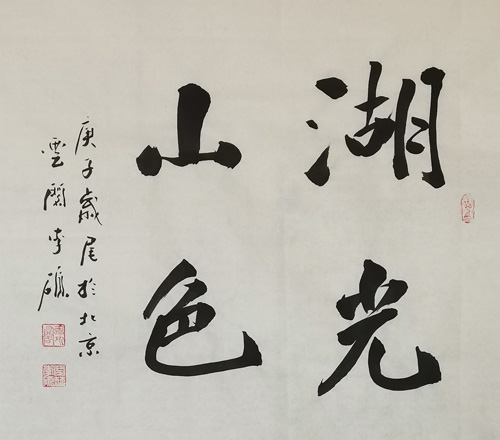 湖光
山色
庚子歲尾於北京
雲閣李礦